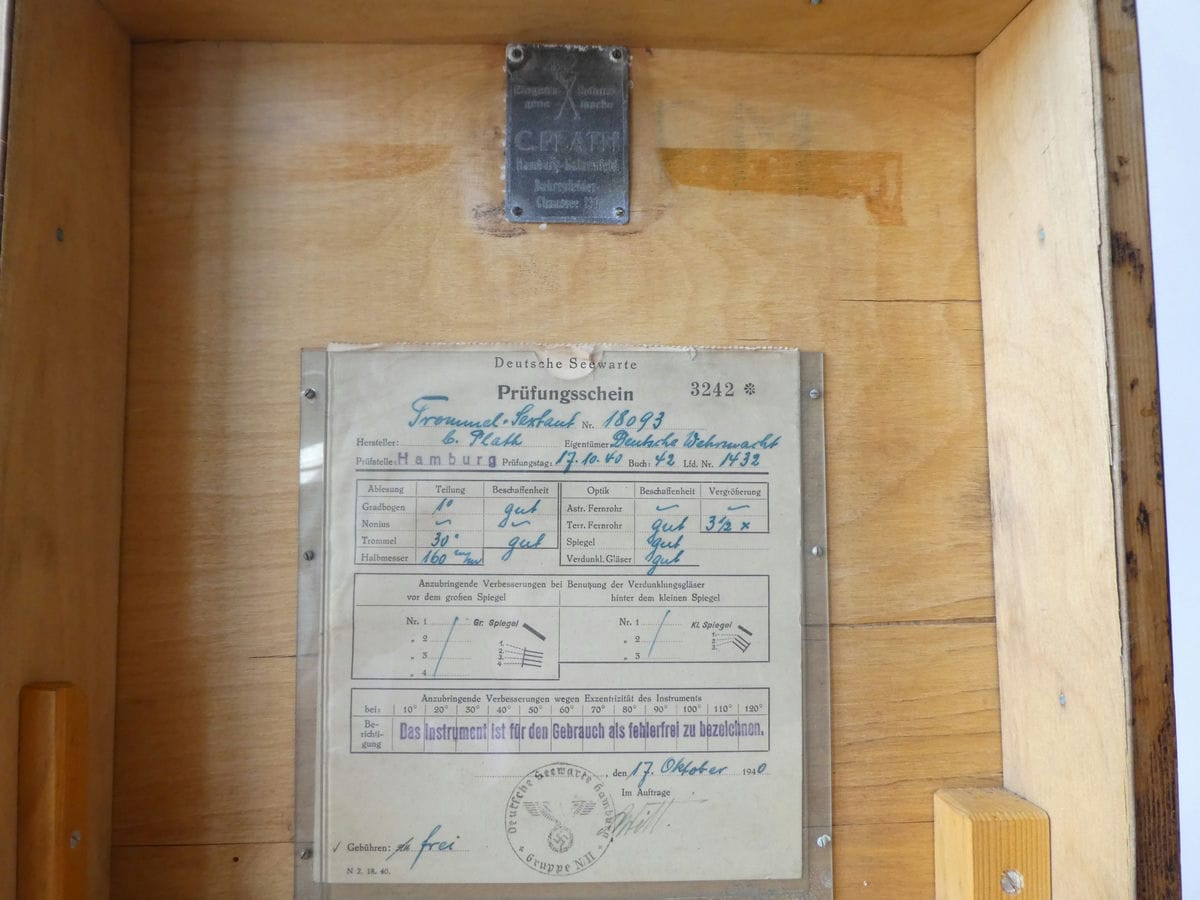 C. PLATH
Hamburg-
Chaussee
Deutsche Seewarte
Prüfungsschein 3242 ❊
Trommel-Sextant Nr. 18093
Hersteller: C. Plath Eigentümer: Deutsche Wehrmacht
Prüfstelle: Hamburg Prüfungstag: 17.10.40 Buch: 42 Lfd. Nr. 1432
Ablesung Teilung Beschaffenheit Optik Beschaffenheit Vergrößerung
Gradbogen 1° gut Astr. Fernrohr – –
Nonius – – Terr. Fernrohr gut 3½ x
Trommel 30" gut Spiegel gut
Halbmesser 160 m/m Verdunkl. Gläser gut
Anzubringende Verbesserungen bei Benutzung der Verdunklungsgläser
vor dem großen Spiegel hinter dem kleinen Spiegel
Nr. 1 Gr. Spiegel Nr. 1 Kl. Spiegel
„ 2 1. 2. 3. 4. „ 2 1. 2. 3.
„ 3 „ 3
„ 4
Anzubringende Verbesserungen wegen Exzentrizität des Instruments
bei: 10° 20° 30° 40° 50° 60° 70° 80° 90° 100° 110° 120°
Be-
richti-
gung
Das Instrument ist für den Gebrauch als fehlerfrei zu bezeichnen.
, den 17. Oktober 1940
Im Auftrage
Deutsche Seewarte Hamburg
* Gruppe N/II *
✓ Gebühren: frei
N 2. 18. 40.